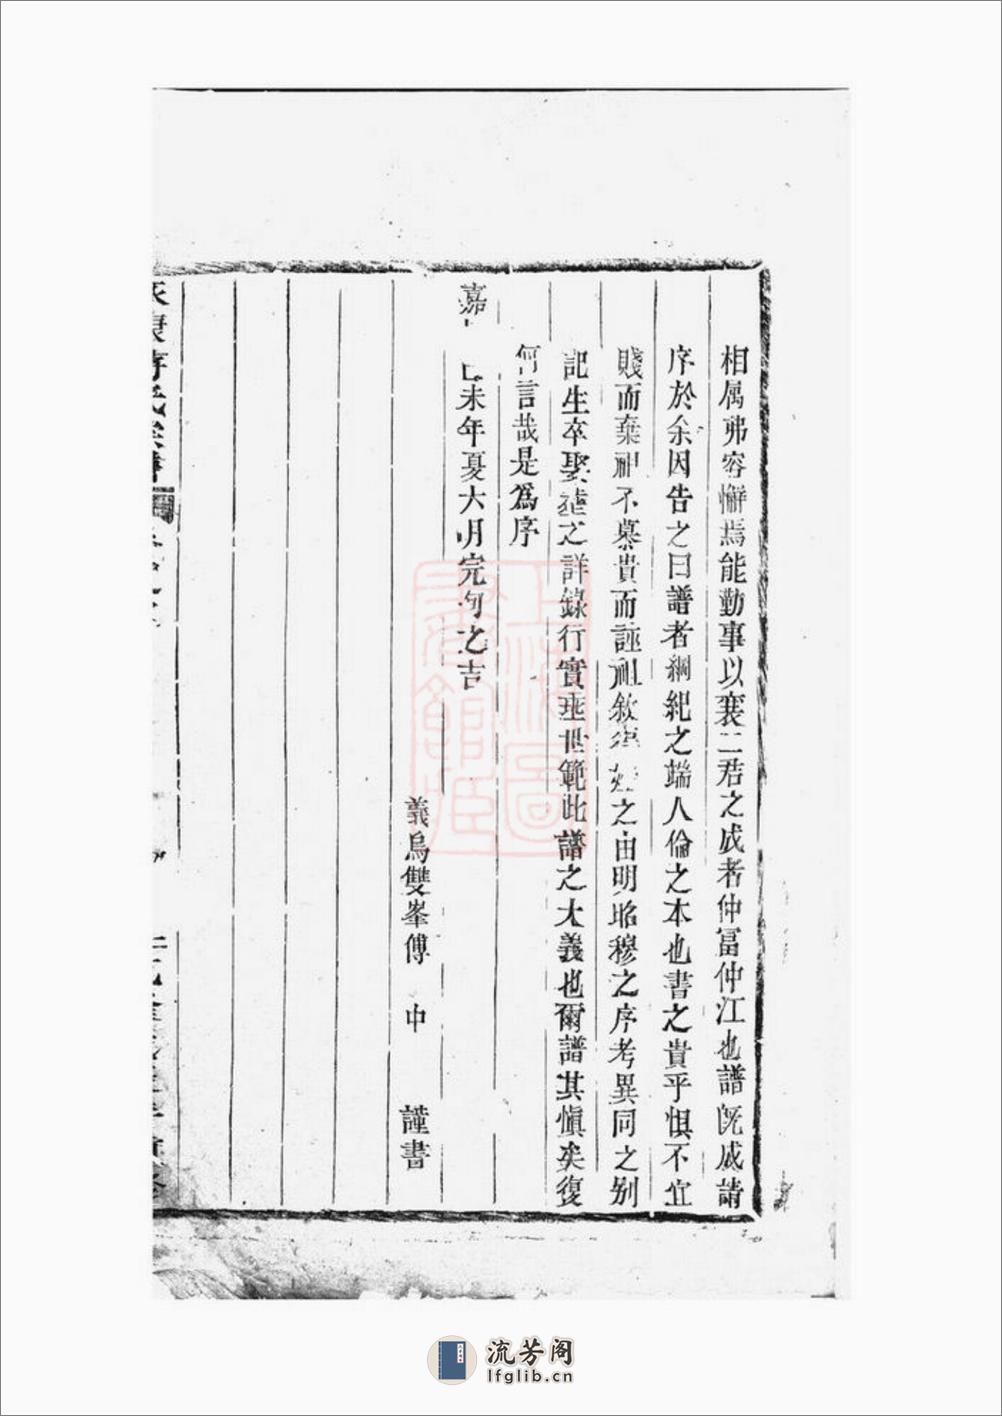 相属弗容懈焉能勤事以襄二君之成者仲冨仲江也譜既成請
序於余因告之曰譜者綱紀之端人倫之本也書之貴乎慎不宜
賤而棄祖不慕貴而誣祖敘 之由明昭穆之序考異同之别
記生卒娶塟之詳錄行實垂世範此譜之大義也爾譜其愼矣復
何言哉是爲序
嘉 己未年夏六月完旬之吉
義烏雙峯傅 中 謹書
上海圖書館藏
流芳阁
lfglib.cn